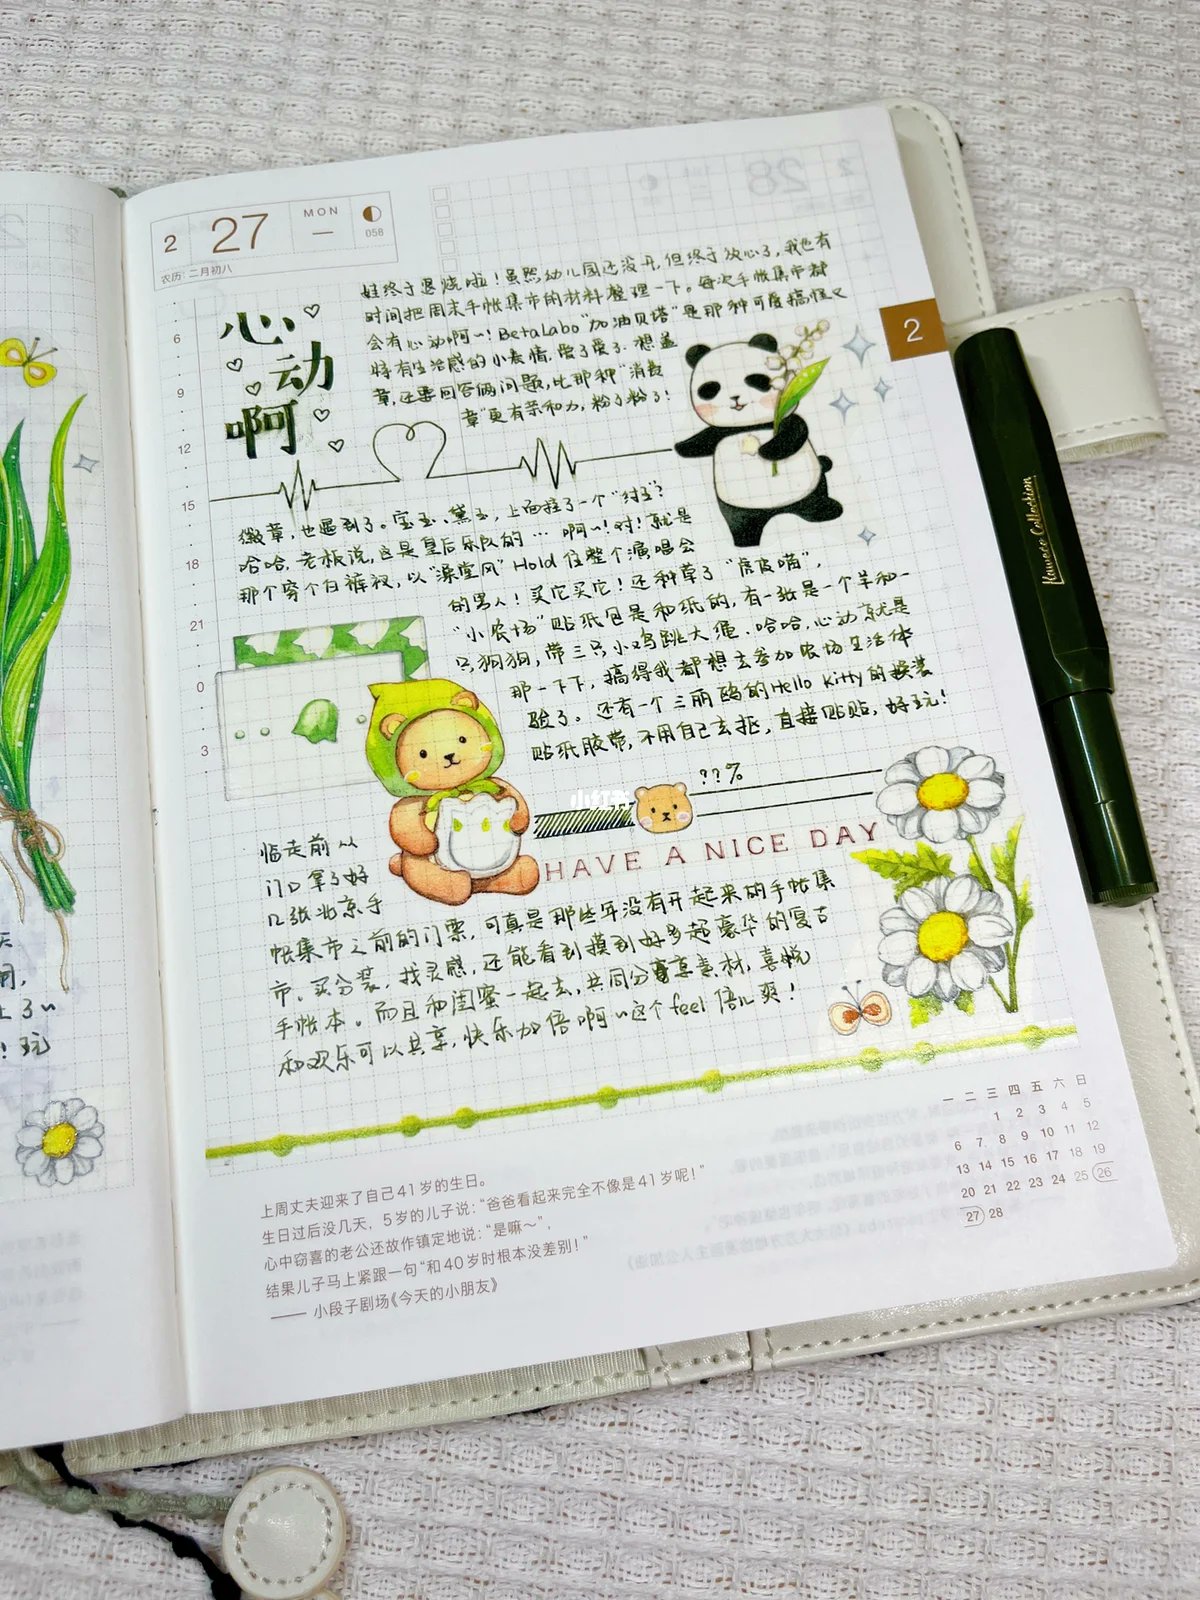 2
27
MON
一
058
农历:二月初八
28
2
6
9
12
15
18
21
0
3
心
动
啊
娃终于退烧啦！虽然幼儿园还没开,但终于放心了,我也有
时间把周末手帐集市的材料整理一下。每次手帐集市都
会有心动啊~！BetaLabo"加油贝塔"是那种可爱搞怪又
特有生活感的小表情,爱了爱了.想盖
章,还要回答俩问题,比那种"消费
章"更有亲和力,粉了粉了！
徽章,也遇到了。宝玉、黛玉,上面挂了一个
哈哈,老板说,这是皇后乐队的…啊~！对！就是
那个穿个白裤衩,以"澡堂风"Hold住整个演唱会
的男人！买它买它！还种草了"虎皮喵",
"小农场"贴纸包是和纸的,有一张是一个羊和一
只狗狗,带三只小鸡跳大绳.哈哈,心动就是
那一下下,搞得我都想去参加农场生活体
验了。还有一个三丽鸥的Hello Kitty的换装
贴纸胶带,不用自己去抠,直接贴贴,好玩！
??%
小红书
HAVE A NICE DAY
临走前从
门口拿了好
几张北京手
帐集市之前的门票,可真是那些年没有开起来的手帐集
市。买分装,找灵感,还能看到摸到好多超豪华的复古
手帐本。而且和闺蜜一起去,共同分享素材,喜悦
和欢乐可以共享,快乐加倍啊~这个feel倍儿爽！
上周丈夫迎来了自己41岁的生日。
生日过后没几天，5岁的儿子说:"爸爸看起来完全不像是41岁呢！"
心中窃喜的老公还故作镇定地说:"是嘛～",
结果儿子马上紧跟一句"和40岁时根本没差别！"
—— 小段子剧场《今天的小朋友》
一 二 三 四 五 六 日
1 2 3 4 5
6 7 8 9 10 11 12
13 14 15 16 17 18 19
20 21 22 23 24 25 26
27 28
Kaweco Collection